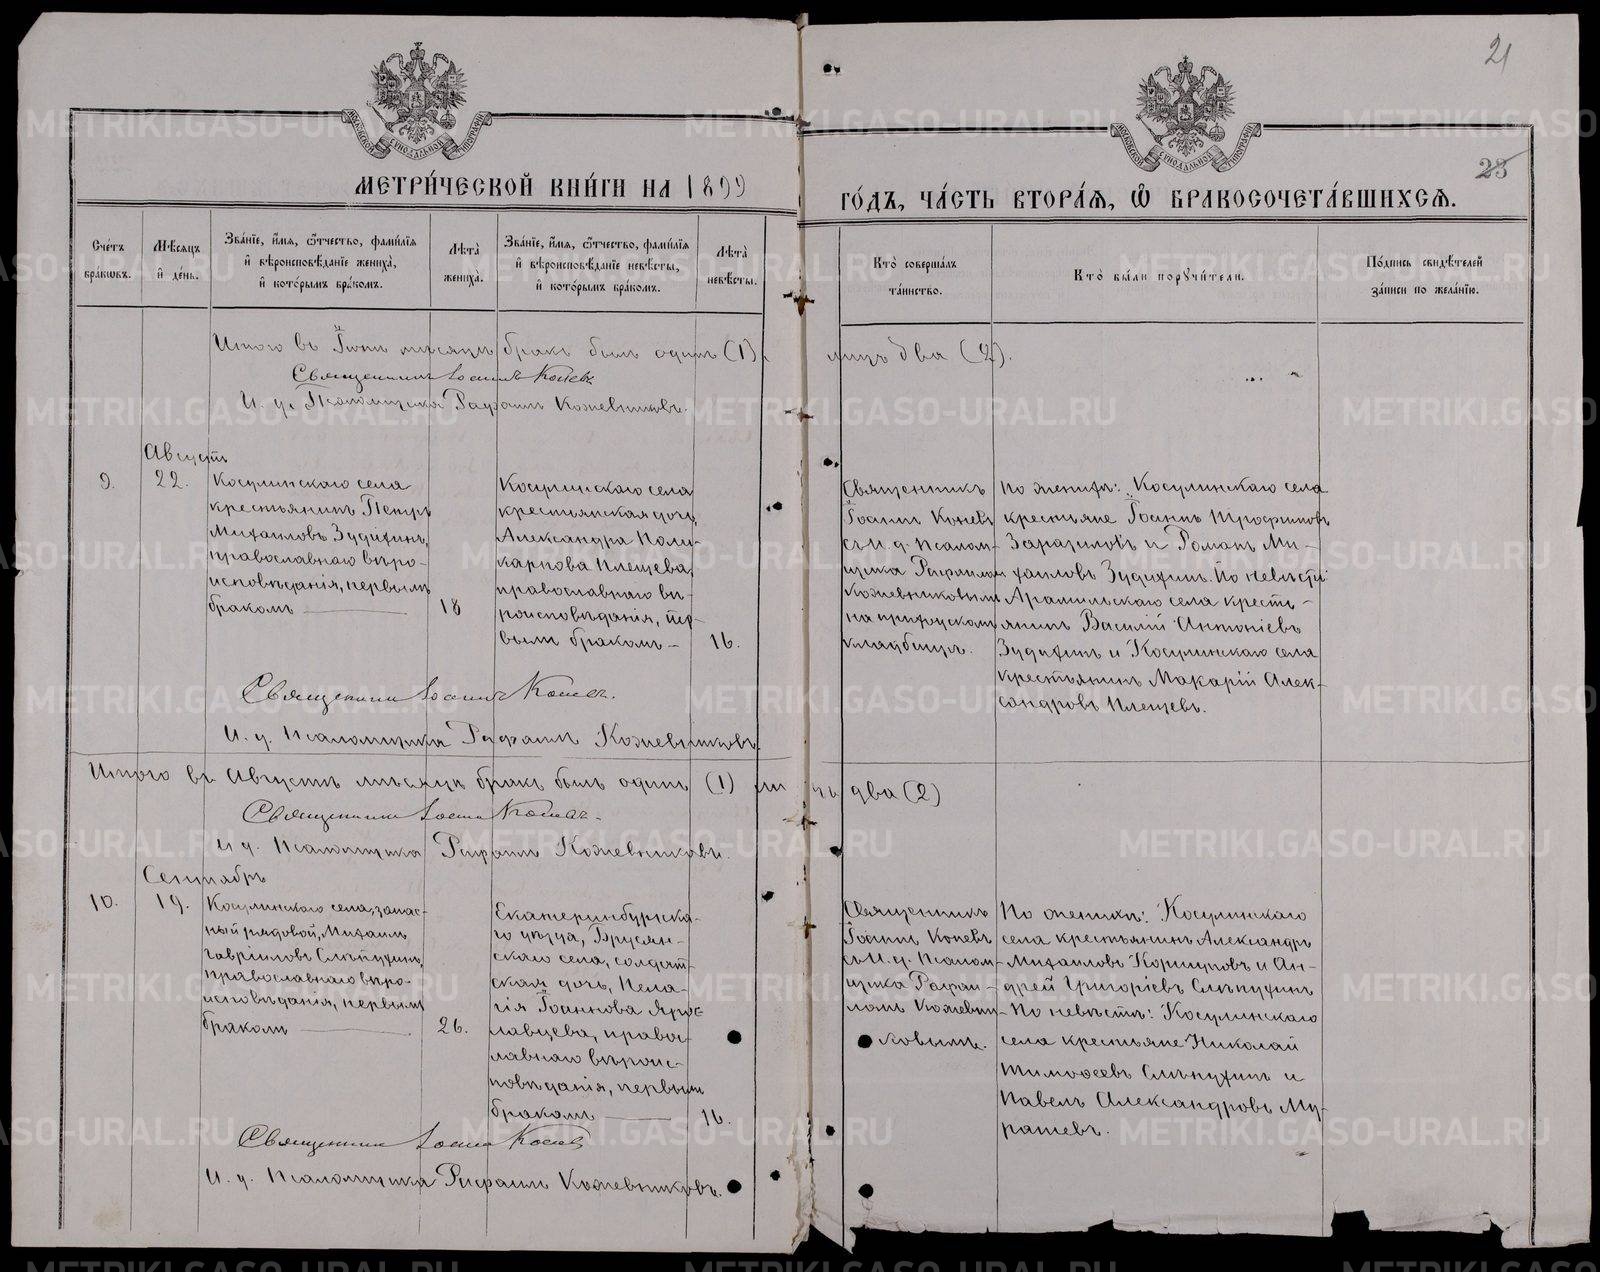 21
23
МЕТРИ́ЧЕСКОЙ КНИ́ГИ НА 1899
ГО́ДЪ, ЧА́СТЬ ВТОРА́Ѧ, Ѡ БРАКОСОЧЕТА́ВШИХСѦ.
Сче́тъ бра́ковъ.
Мѣ́сяцъ и де́нь.
Зва́нїе, и́мя, ѻ́тчество, фами́лїя и вѣроисповѣ́данїе жениха̀, и кото́рымъ бра́комъ.
Лѣта̀ жениха̀.
Зва́нїе, и́мя, ѻ́тчество, фами́лїя и вѣроисповѣ́данїе невѣ́сты, и кото́рымъ бра́комъ.
Лѣта̀ невѣ́сты.
Кто̀ соверша́лъ та́инство.
Кто̀ бы́ли поручи́тели.
По́дпись свидѣ́телей за́писи по жела́нїю.
Итого въ Іюнѣ мѣсяцѣ бракъ былъ одинъ (1), лицъ два (2).
Священникъ Іоаннъ Коневъ
И. д. Псаломщика Рафаилъ Кожевниковъ.
Августъ
9.
22.
Косулинскаго села
крестьянинъ Петръ
Михаиловъ Зудихинъ,
православнаго вѣро-
исповѣданія, первымъ
бракомъ
18
Косулинскаго села
крестьянская дочь,
Александра Поли-
карпова Плещева,
православнаго вѣ-
роисповѣданія, пер-
вымъ бракомъ —
16.
Священникъ
Іоаннъ Коневъ
съ И. д. Псалом-
щика Рафаиломъ
Кожевниковымъ
на приходскомъ
кладбищѣ.
По женихѣ: Косулинскаго села
крестьяне Іоаннъ Трофимовъ
Заразиловъ и Романъ Ми-
хаиловъ Зудихинъ. По невѣстѣ:
Арамильскаго села кресть-
янинъ Василій Антоніевъ
Зудихинъ и Косулинскаго села
крестьянинъ Макарій Алек-
сандровъ Плещевъ.
Священникъ Іоаннъ Коневъ.
И. д. Псаломщика Рафаилъ Кожевниковъ.
Итого въ Августѣ мѣсяцѣ бракъ былъ одинъ (1) лицъ два (2)
Священникъ Іоаннъ Коневъ.
И д. Псаломщика Рафаилъ Кожевниковъ.
Сентябрь
10.
19.
Косулинскаго села, запас-
ный рядовой, Михаилъ
Гавріиловъ Слѣпухинъ,
православнаго вѣро-
исповѣданія, первымъ
бракомъ
26.
Екатеринбургска-
го уѣзда, Брусян-
скаго села, солдат-
ская дочь, Пела-
гія Іоаннова Яро-
славцева, право-
славнаго вѣроис-
повѣданія, первымъ
бракомъ
16.
Священникъ
Іоаннъ Коневъ
съ И. д. Псалом-
щика Рафаи-
ломъ Кожевни-
ковымъ.
По женихѣ: Косулинскаго
села крестьянинъ Александръ
Михаиловъ Коршуновъ и Ан-
дрей Григоріевъ Слѣпухинъ
По невѣстѣ: Косулинскаго
села крестьяне Николай
Тимоѳеевъ Слѣпухинъ и
Павелъ Александровъ Му-
рашевъ.
Священникъ Іоаннъ Коневъ
И. д. Псаломщика Рафаилъ Кожевниковъ.
METRIKI.GASO-URAL.RU